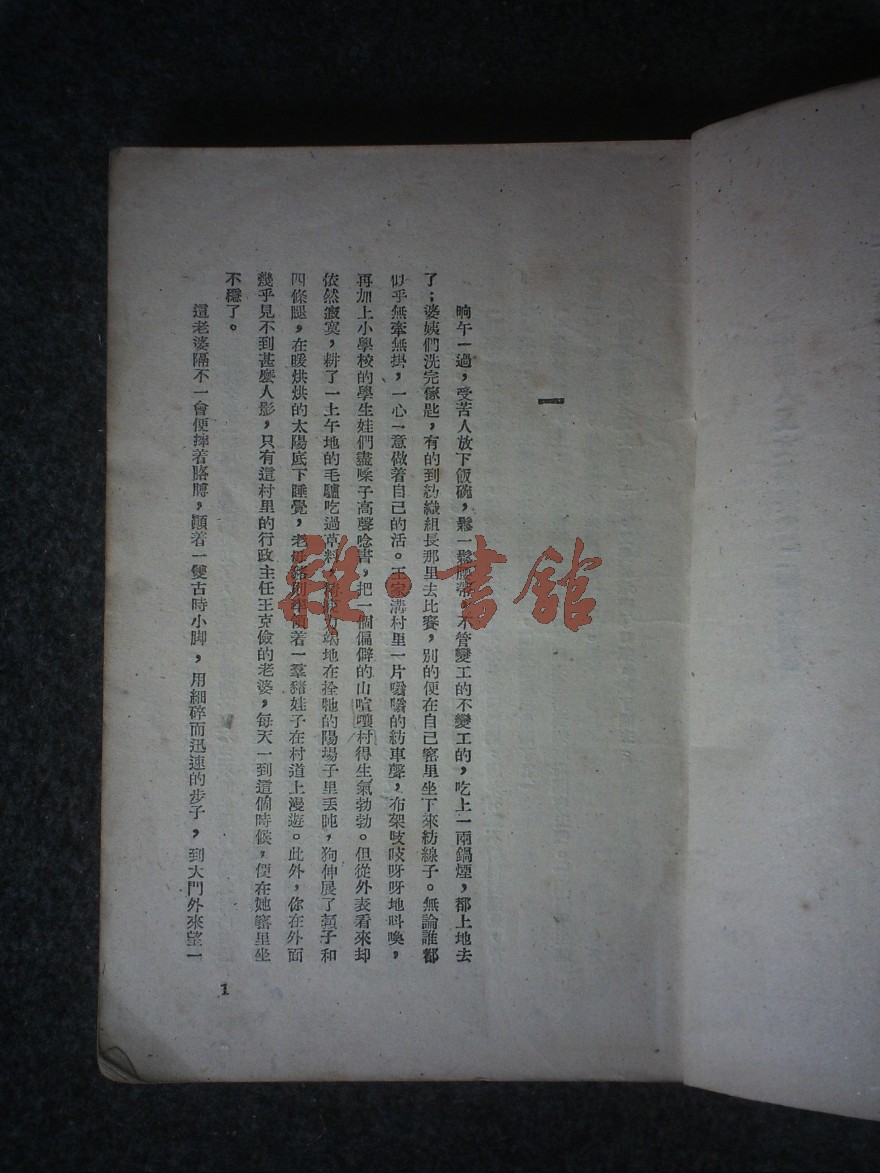 一
晌午一過，受苦人放下飯碗，鬆一鬆腰帶，不管變工的不變工的，吃上一兩鍋煙，都上地去
了；婆姨們洗完傢匙，有的到紡織組長那里去比賽，別的便在自己窰里坐下來紡線子。無論誰都
似乎無牽無掛，一心一意做着自己的活。王家溝村里一片嗡嗡的紡車聲，布架吱吱呀呀地叫喚，
再加上小學校的學生娃們盡嗓子高聲唸書，把一個偏僻的山喧嚷村得生氣勃勃。但從外表看來却
依然寂寞，耕了一上午地的毛驢吃過草料，竭地在拴牠的陽場子里丟盹，狗伸展了頸子和
四條腿，在暖烘烘的太陽底下睡覺，老母豬則率領着一羣豬娃子在村道上漫遊。此外，你在外面
幾乎見不到甚麼人影，只有這村里的行政主任王克儉的老婆，每天一到這個時候，便在她窰里坐
不穩了。
這老婆隔不一會便摔着胳膊，顚着一雙古時小脚，用細碎而迅速的步子，到大門外來望一
1
雜·書館